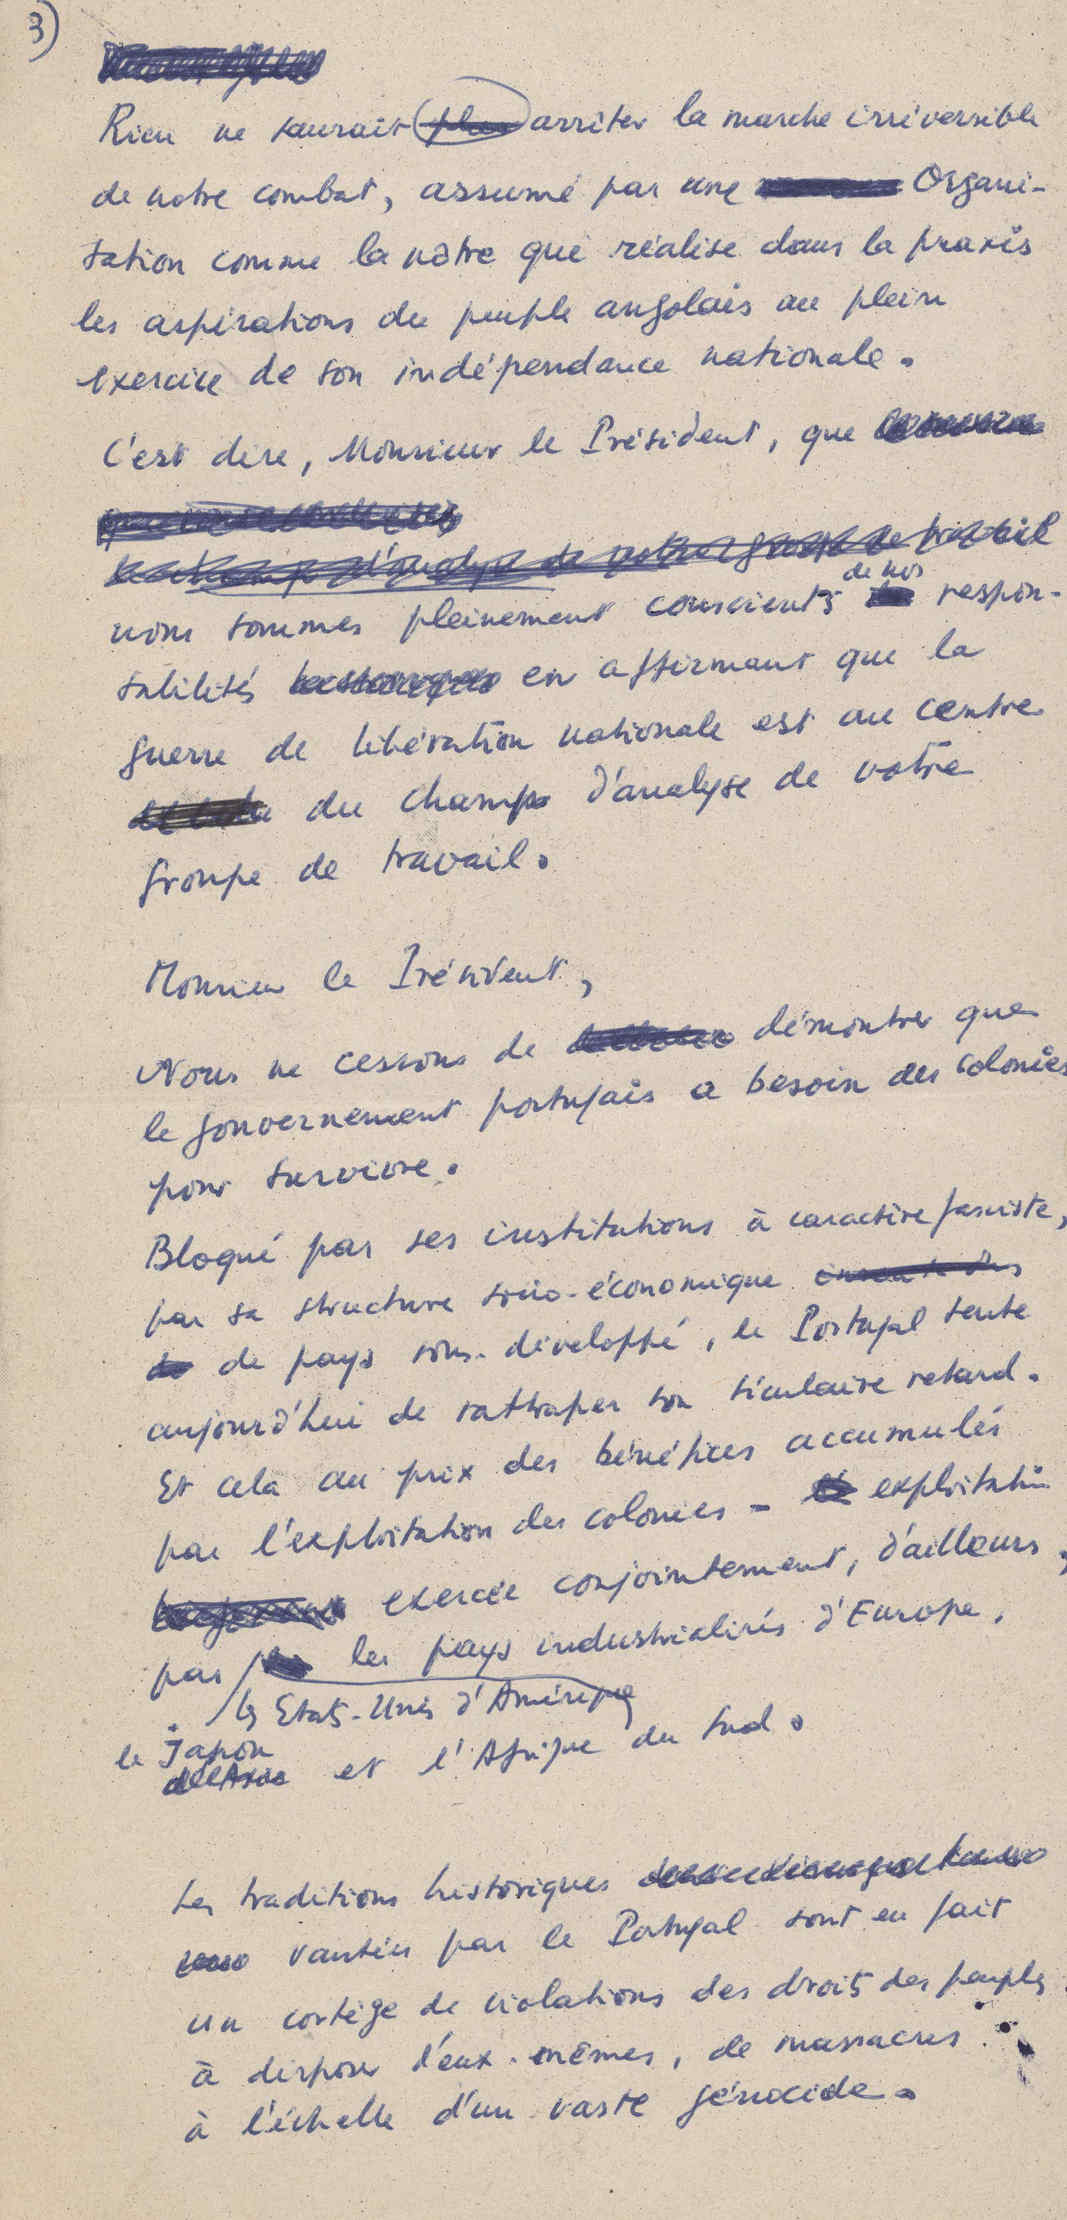 3)
Rien ne saurait plus arrêter la marche irréversible
de notre combat, assumé par une Organi-
sation comme la nôtre qui réalise dans la praxis
les aspirations du peuple angolais au plein
exercice de son indépendance nationale.
C'est dire, Monsieur le Président, que
nous sommes pleinement conscients de nos respon-
sabilités en affirmant que la
guerre de libération nationale est au centre
du champ d'analyse de votre
groupe de travail.
Monsieur le Président,
Nous ne cessons de démontrer que
le gouvernement portugais a besoin des colonies
pour survivre.
Bloqué par ses institutions à caractère fasciste,
par sa structure socio-économique
de pays sous-développé, le Portugal tente
aujourd'hui de rattraper son séculaire retard.
Et cela au prix des bénéfices accumulés
par l'exploitation des colonies - exploitation
exercée conjointement, d'ailleurs,
par les pays industrialisés d'Europe,
les Etats-Unis d'Amérique
le Japon
de l'Asie et l'Afrique du Sud.
Les traditions historiques
vantées par le Portugal sont en fait
un cortège de violations des droits des peuples
à disposer d'eux-mêmes, de massacres
à l'échelle d'un vaste génocide.